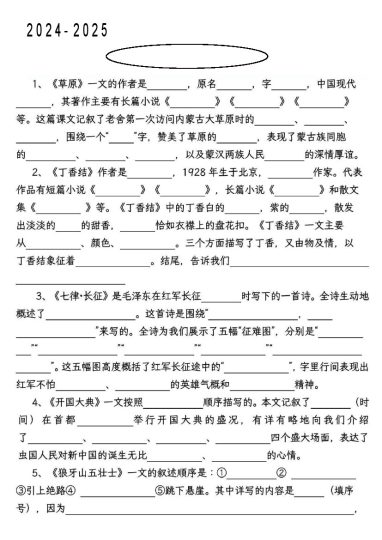 2024-2025
1、《草原》一文的作者是________，原名________，字________，中国现代
________，其著作主要有长篇小说《________》《________》《________》
等。这篇课文记叙了老舍第一次访问内蒙古大草原时的________、________、
________，围绕一个"____"字，赞美了草原的________，表现了蒙古族同胞
的________、________、________，以及蒙汉两族人民________的深情厚谊。
2、《丁香结》作者是________，1928 年生于北京，________作家。代表
作品有短篇小说《________》《________》，长篇小说《________》和散文
集《________ 》等。《丁香结》中的丁香白的________，紫的________，散发
出淡淡的____的甜香，________恰如衣襟上的盘花扣。《丁香结》一文主要
从________、颜色、________。三个方面描写了丁香，又由物及情，以
丁香结象征着____________。结尾，告诉我们____________________
________________
3、《七律·长征》是毛泽东在红军长征________时写下的一首诗。全诗生动地
概述了________________。这首诗是围绕"________________，____
____________"来写的。全诗为我们展示了五幅"征难图"，分别是"________
____""____________""____________""____________""________
________"。这五幅图高度概括了红军长征途中的"____________"，字里行间表现出
红军不怕________、________的英雄气概和____________精神。
4、《开国大典》一文按照____________顺序描写的。本文记叙了________(时
间）在首都________举行开国大典的盛况，有详有略地向我们介绍
了____________、____________、____________、____________四个盛大场面，表达了
虫国人民对新中国的诞生无比________、________的心情。
5、《狼牙山五壮士》一文的叙述顺序是：①________② ____________
③引上绝路④ ____________⑤跳下悬崖。其中详写的内容是________（填序
号），因为________________________________________，